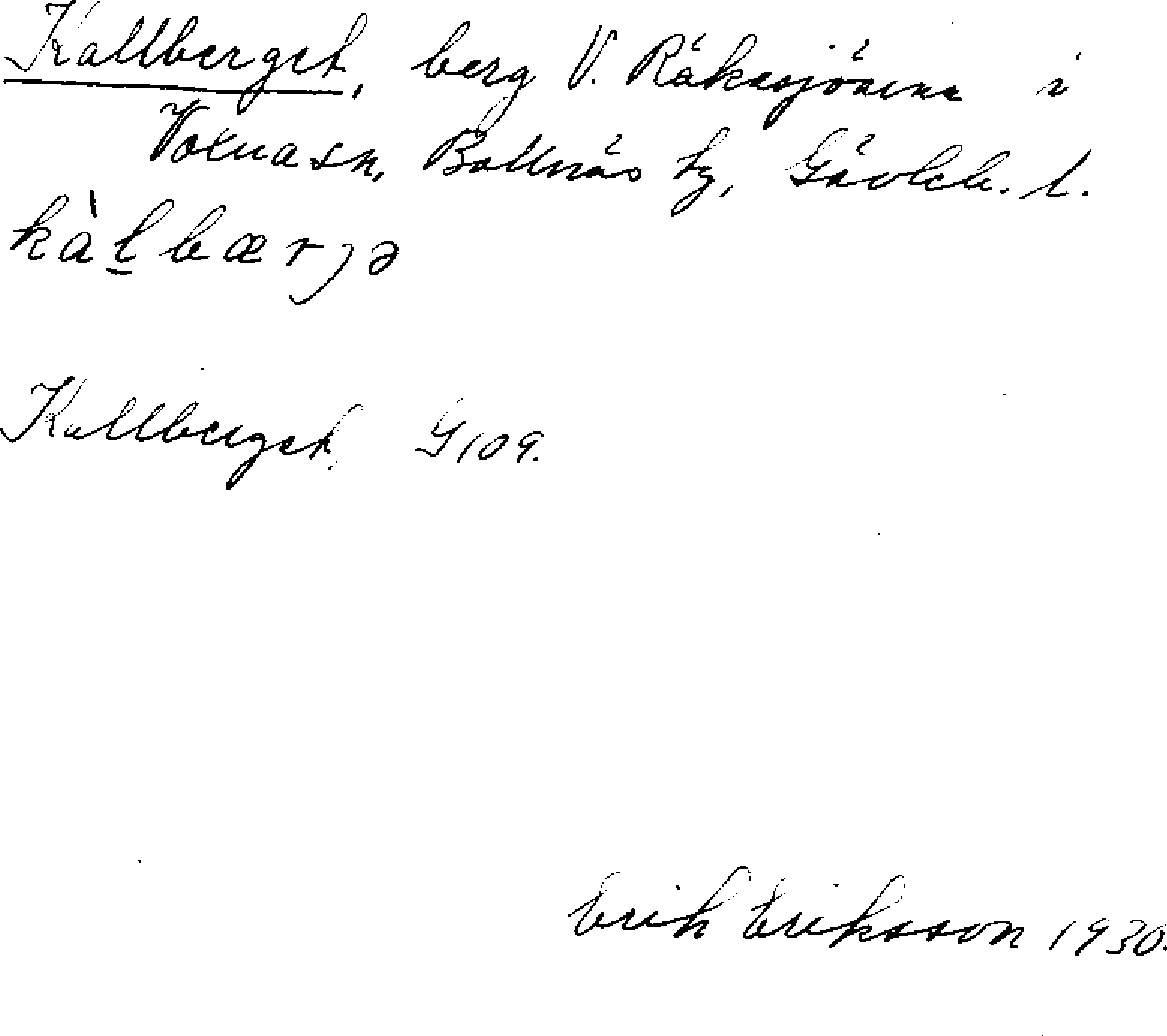 Kallberget, berg V. Råksjöarna i
Voxna sn, Bollnäs tg, Gävleb. l.
kàl̲bærjə
Kallberget. G109.
Erik Eriksson 1930.